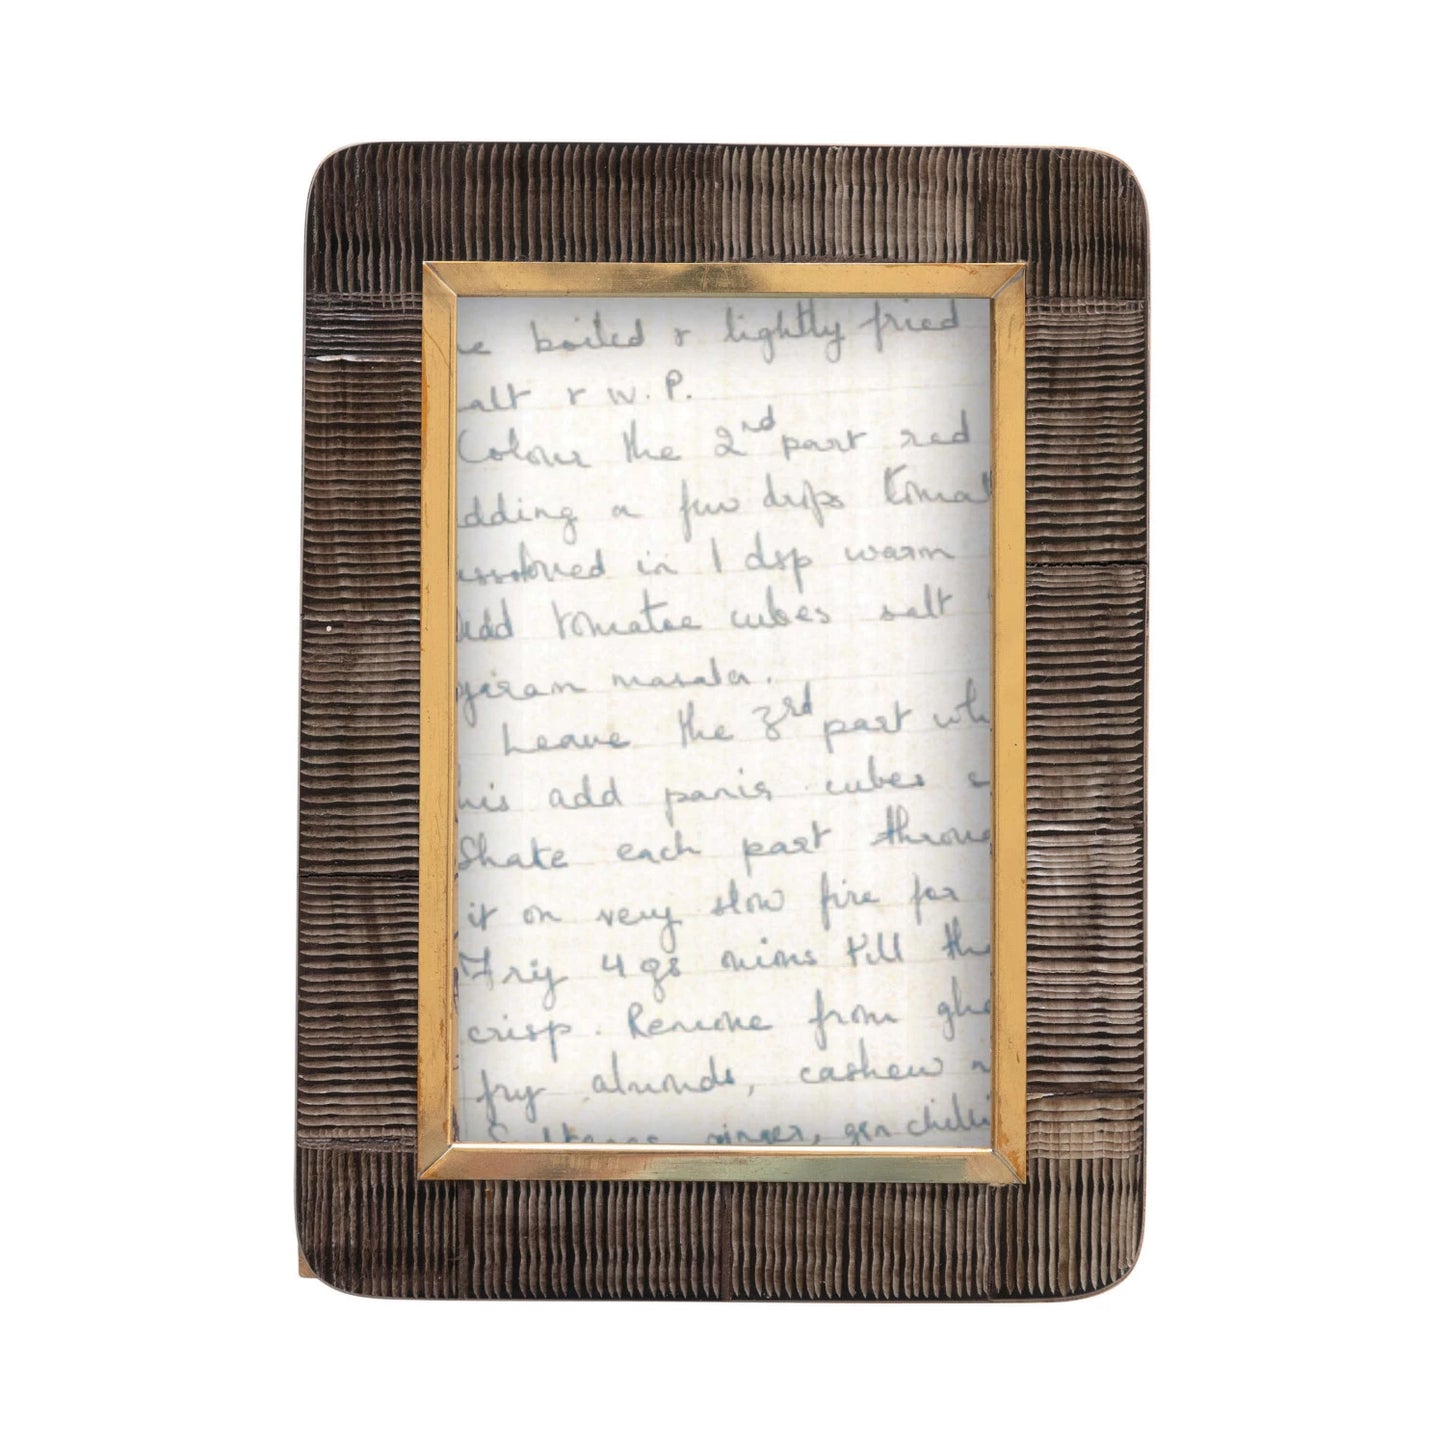 e boiled & lightly fried
alt & W.P.
Colour the 2nd part red
dding a few drops tomat
ssolved in 1 dsp warm
Add tomatoe cubes salt
garam masala.
Leave the 3rd part wh
his add panir cubes
Shake each part throug
it on very slow fire for
Fry 4 gs onions till the
crisp. Remove from ghe
fry almonds, cashew n
Sultanas, ginger, grn chilli